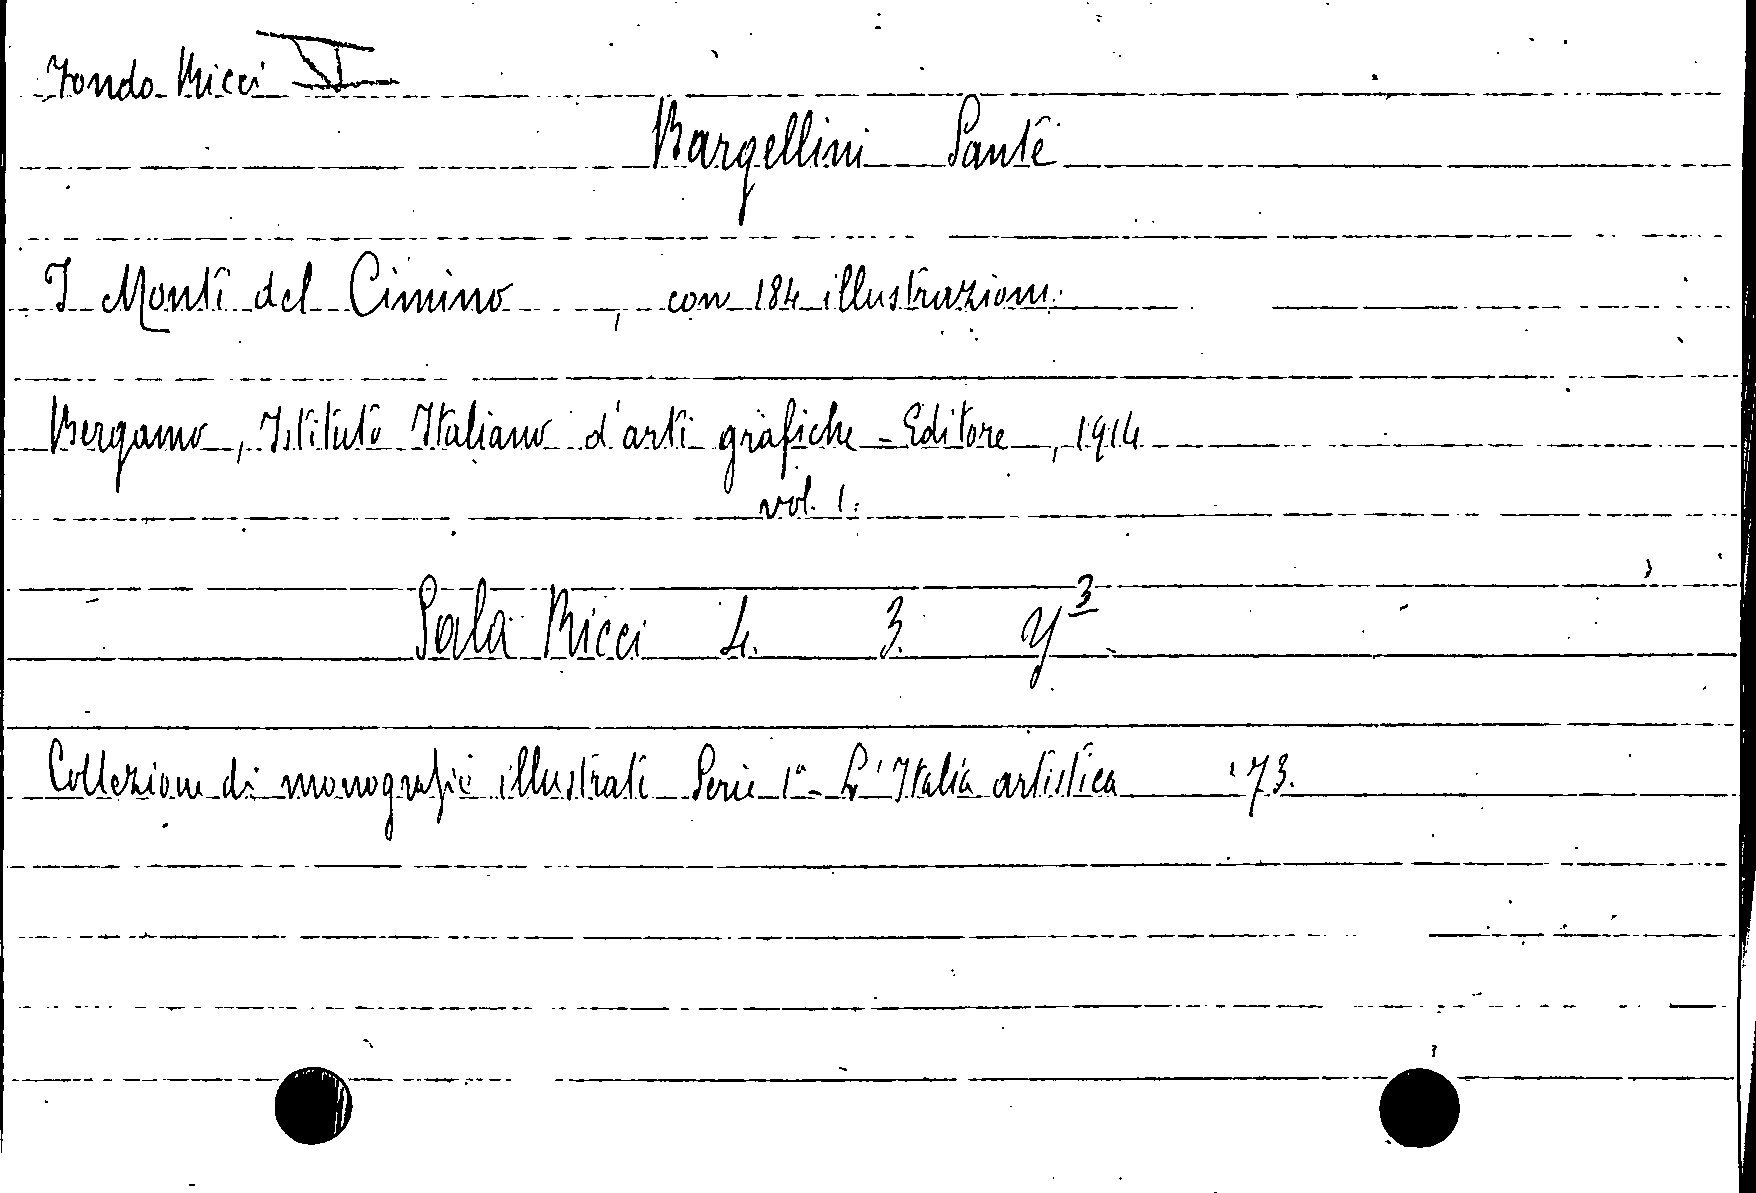 Fondo Ricci V
Bargellini Sante
I Monti del Cimino , con 184 illustrazioni.
Bergamo, Istituto Italiano d'arti grafiche - Editore, 1914
vol. 1.
Sala Ricci 4. 3. y 3
Collezione di monografie illustrati Serie 1ª - L'Italia artistica 73.